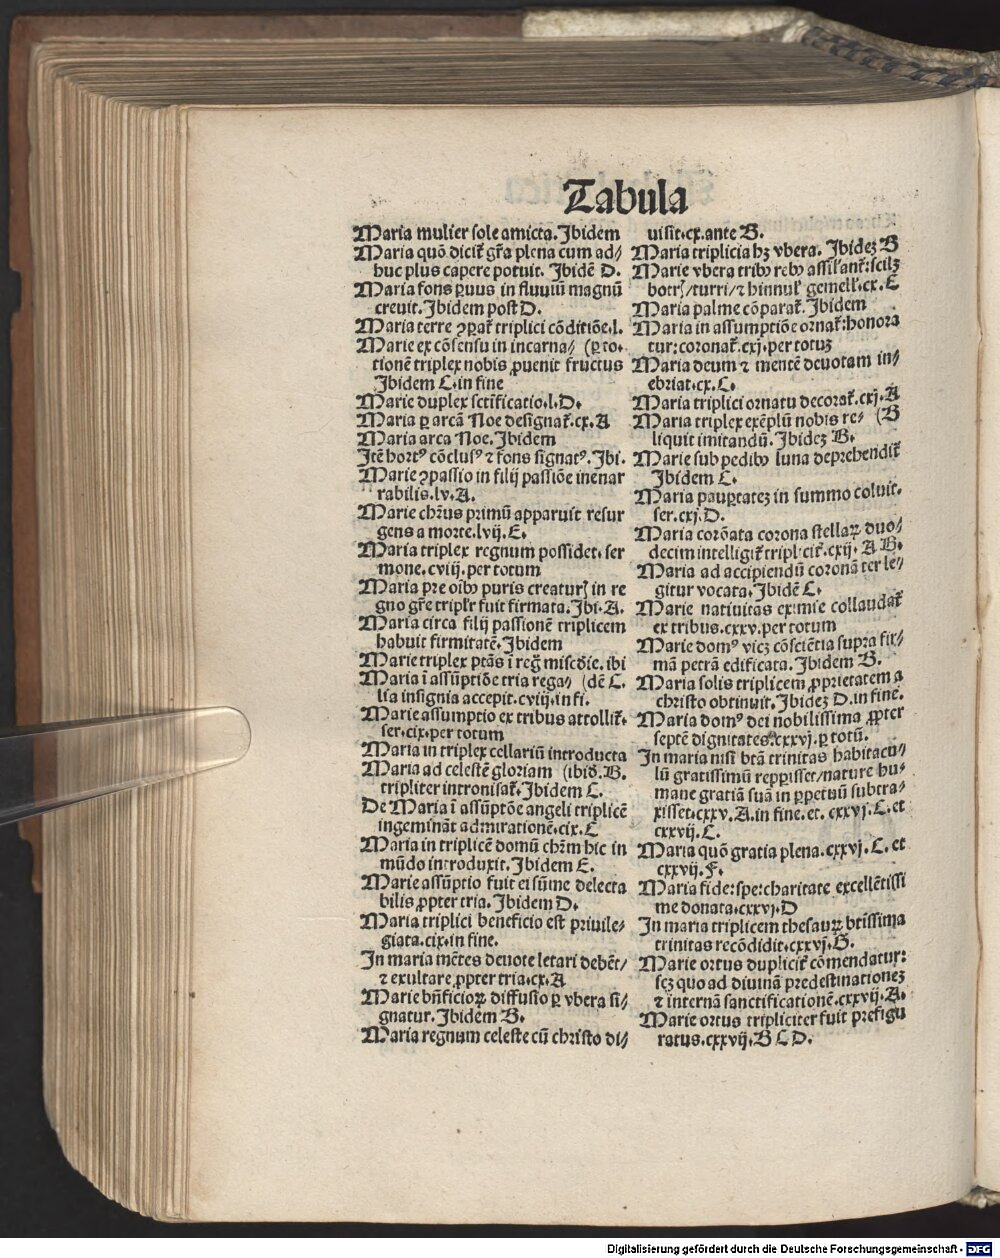 Tabula
Maria mulier sole amicta. Ibidem
Maria quō dicit̄ gr̄a plena cum ad⸗
huc plus capere potuit. Ibidē D.
Maria fons ꝑuus in fluuiū magnū
creuit. Ibidem post D.
Maria terre ꝯꝑat̄ triplici cōditiōe.l.
Marie ex cōsensu in incarna⸗ (ꝑ to.
tionē triplex nobis ꝓuenit fructus
Ibidem C. in fine
Marie duplex sct̄ificatio.l.D.
Maria ꝑ arcā Noe designat̄.cx.A
Maria arca Noe. Ibidem
Itē hortꝰ cōclusꝰ ⁊ fons signatꝰ. Ibi.
Marie ꝯpassio in filij passiōe inenar
rabilis.lv.A.
Marie chr̄us primū apparuit resur
gens a morte.lvij.E.
Maria triplex regnum possidet. ser
mone.cviij.per totum
Maria pre oībꝰ puris creaturꝭ in re
gno gr̄e triplr̄ fuit firmata. Ibi.A.
Maria circa filij passionē triplicem
habuit firmitatē. Ibidem
Marie triplex ptās ī regꝭ misc̄die. ibi
Maria ī assūptiōe tria rega⸗ (dē C.
lia insignia accepit.cviij.in fi.
Marie assumptio ex tribus attollit̄.
ser.cix.per totum
Maria in triplex cellariū introducta
Maria ad celestē gloriam (ibid̄.B.
tripliter intronisat̄. Ibidem C.
De Maria ī assūptōe angeli triplicē
ingemināt admirationē.cix.C
Maria in triplicē domū chr̄m hic in
mūdo introduxit. Ibidem E.
Marie assūptio fuit ei sūme delecta
bilis ꝓpter tria. Ibidem D.
Maria triplici beneficio est priuile⸗
giata.cix.in fine.
In maria mētes deuote letari debēt/
⁊ exultare ꝓpter tria.cx.A
Marie bn̄ficioꝝ diffusio ꝑ vbera si⸗
gnatur. Ibidem B.
Maria regnum celeste cū christo di⸗
uisit.cx.ante B.
Maria triplicia hꝫ vbera. Ibideꝫ B
Marie vbera tribꝰ rebꝰ assil̄ant̄:scilꝫ
botrꝭ/turri/⁊ hinnul̄ gemell̄.cx.C
Maria palme cōparat̄. Ibidem
Maria in assumptiōe ornat̄:honora
tur:coronat̄.cxj.per totuꝫ
Maria deum ⁊ mentē deuotam in⸗
ebriat.cx.C.
Maria triplici ornatu decorat̄.cxj.A
Maria triplex exēplū nobis re⸗ (B
liquit imitandū. Ibideꝫ B.
Marie sub pedibꝰ luna deprehendit̄
Ibidem C.
Maria pauꝑtateꝫ in summo coluit.
ser.cxj.D.
Maria corōata corona stellaꝝ duo⸗
decim intelligit̄ triplicit̄.cxij. A B.
Maria ad accipiendū coronā ter le⸗
gitur vocata. Ibidē C.
Marie natiuitas eximie collaudat̄
ex tribus.cxxv.per totum
Marie domꝰ vicꝫ cōsciētia supra fir⸗
mā petrā edificata. Ibidem B.
Maria solis triplicem ꝓprietatem a
christo obtinuit. Ibideꝫ D. in fine.
Maria domꝰ dei nobilissima ꝓpter
septē dignitates.cxxvj.ꝑ totū.
In maria nisi btā trinitas habitacu⸗
lū gratissimū repperisset/nature hu⸗
mane gratiā suā in ꝑpetuū subtra⸗
xisset.cxxv.A. in fine. et. cxxvj.C. et
cxxvij.C.
Maria quō gratia plena.cxxvj.C. et
cxxvij.F.
Maria fide:spe:charitate excellētissi
me donata.cxxvj.D
In maria triplicem thesauꝝ btīssima
trinitas recōdidit.cxxvj.G.
Marie ortus duplicit̄ cōmendatur:
scꝫ quo ad diuinā predestinationeꝫ
⁊ internā sanctificationē.cxxvij.A.
Marie ortus tripliciter fuit prefigu
ratus.cxxvij.B C D.
Digitalisierung gefördert durch die Deutsche Forschungsgemeinschaft - DFG